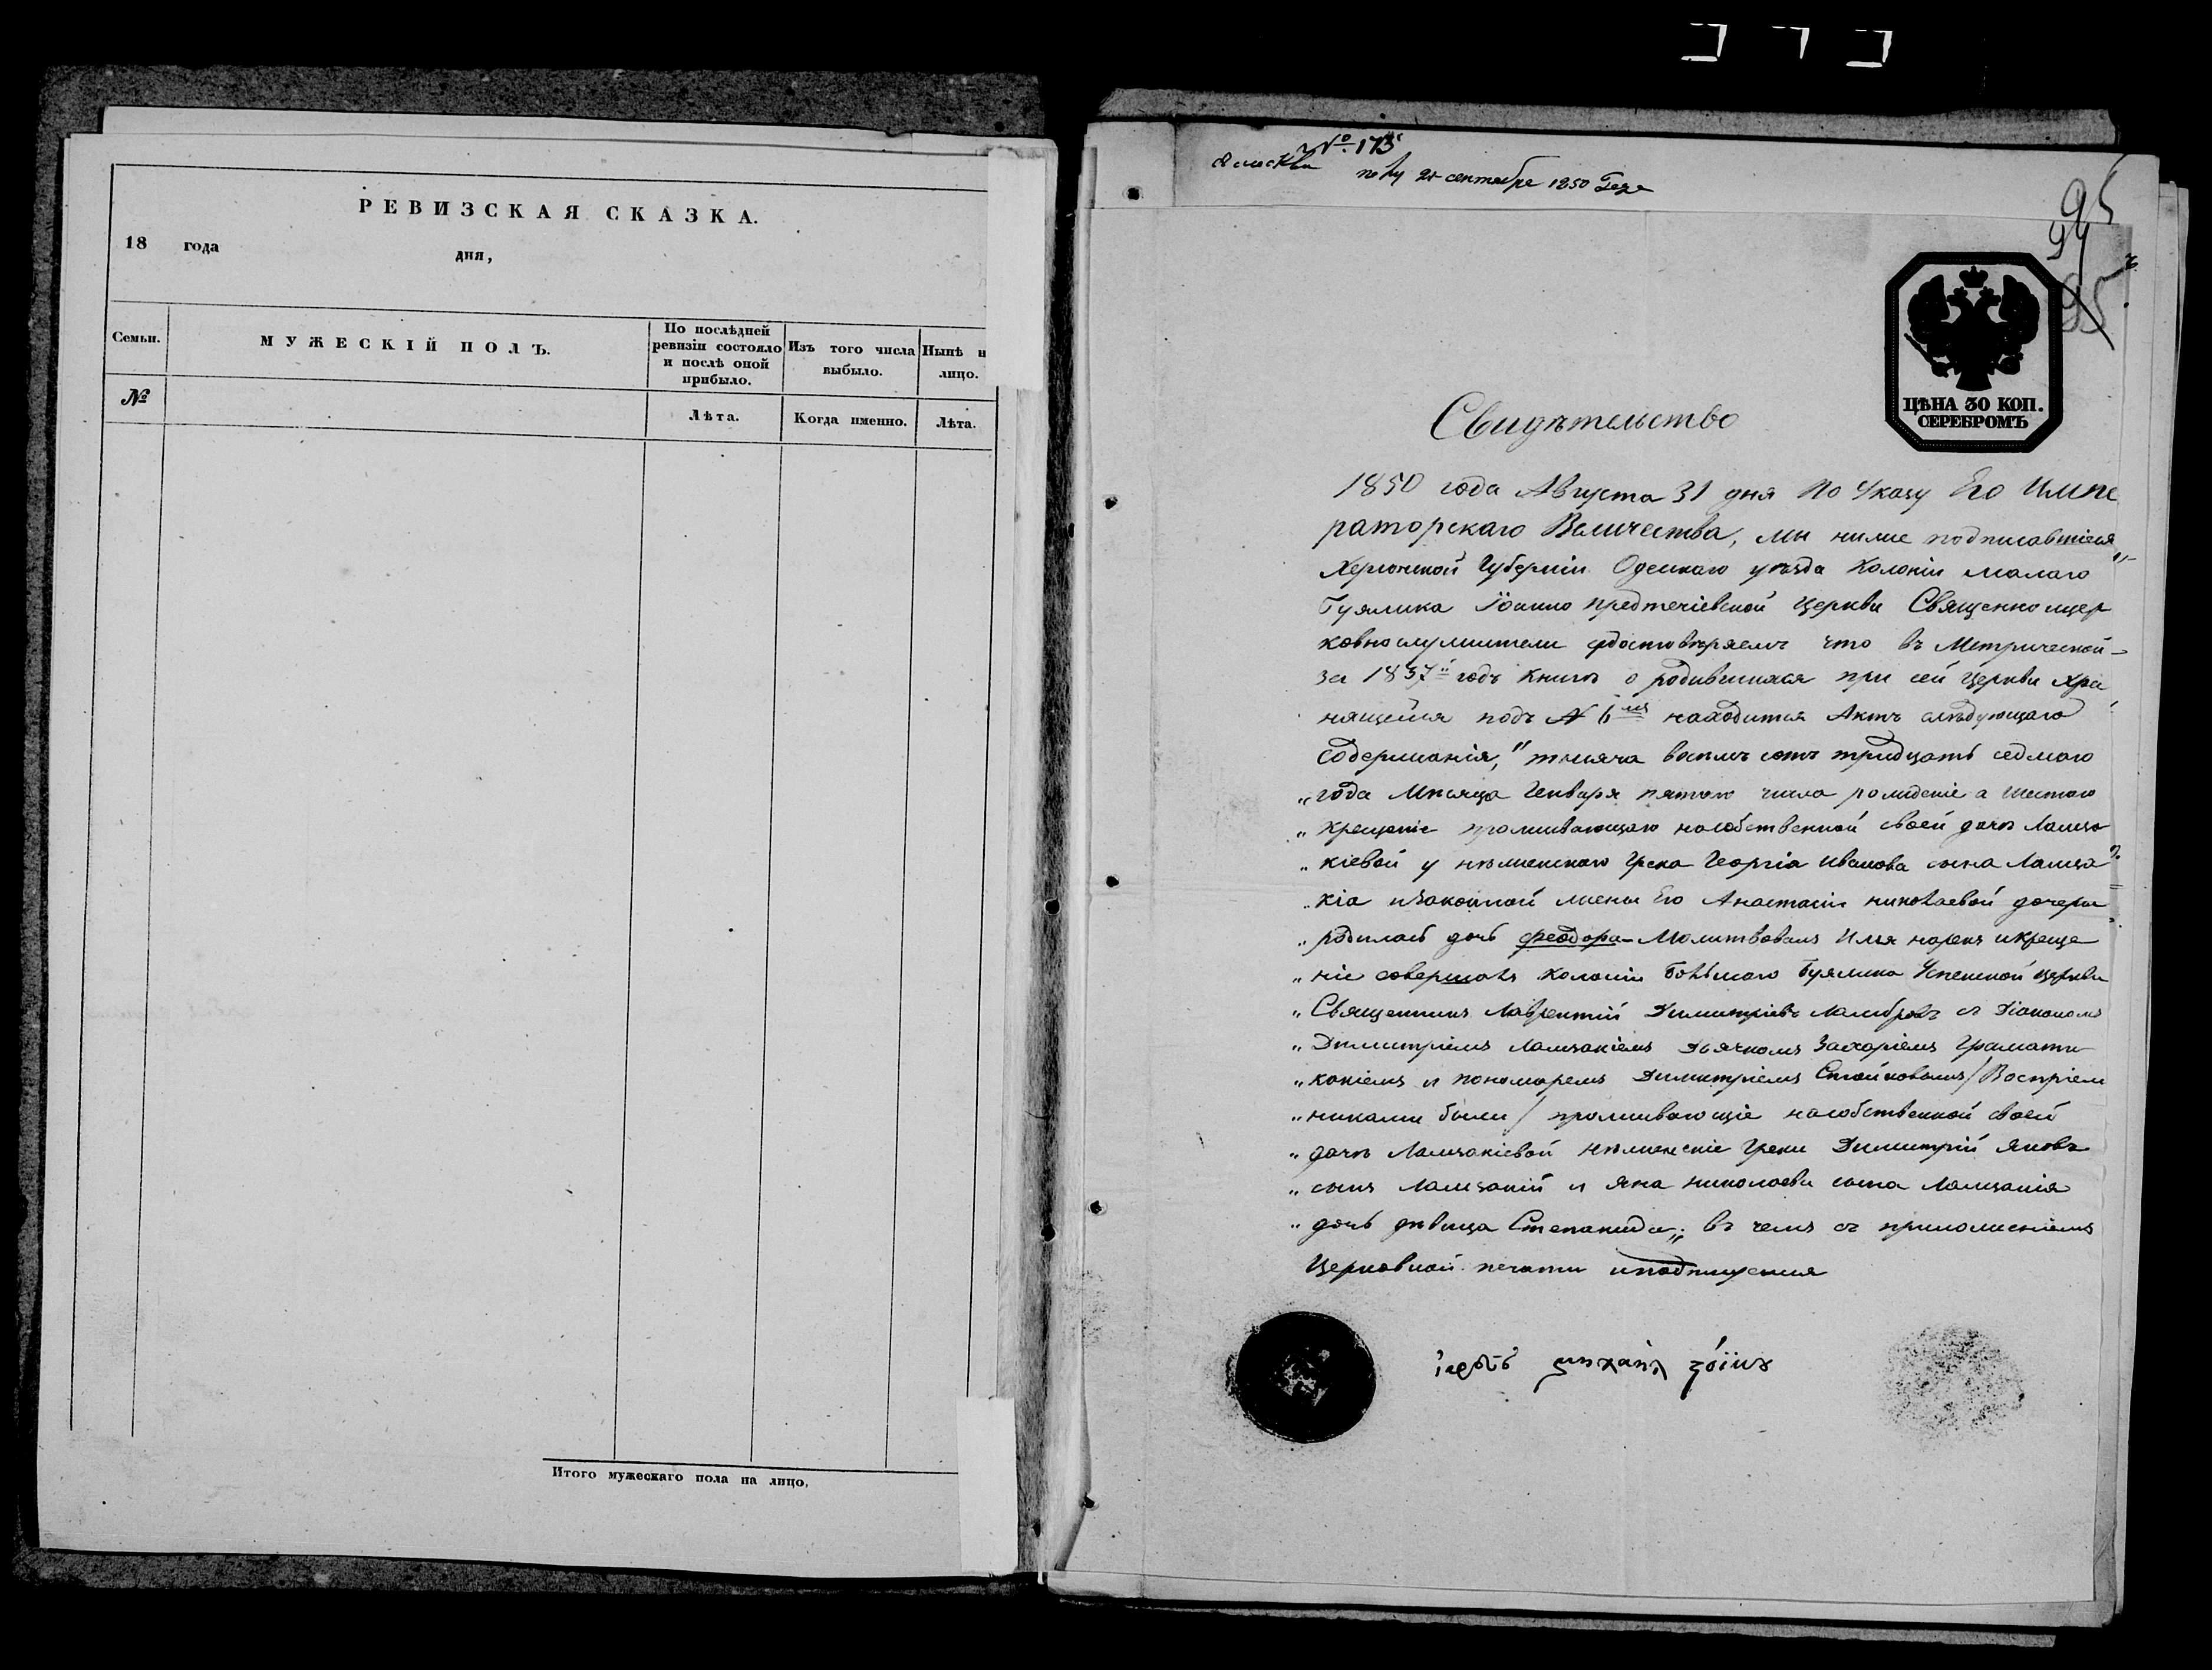 РЕВИЗСКАЯ СКАЗКА.
18 года
дня,
Семьи.
МУЖЕСКІЙ ПОЛЪ.
По послѣдней ревизіи состояло и послѣ оной прибыло.
Изъ того числа выбыло.
Нынѣ н
лицо.
№
Лѣта.
Когда именно.
Лѣта.
Итого мужескаго пола на лицо,
№ 173
сентября 1850 Года
95
94
95
ЦѢНА 30 КОП.
СЕРЕБРОМЪ
Свидѣтельство
1850 года Августа 31 дня По Указу Его Импе
раторскаго Величества, мы ниже подписавшіеся
Херсонской Губерніи Одескаго уѣзда Колоніи малаго
Буялика Іоанно предтечіевской церкви Священноцер
ковнослужители удостовѣряемъ что въ Метрической
за 1837й годъ книгѣ о родившихся при сей Церкви хра
нящейся подъ № 6 находится Актъ слѣдующаго
содержанія, " тысяча восемь сотъ тридцать седмаго
„ года Мѣсяца Генваря пятого числа рождение а шестого
„ крещеніе проживающаго насобственной своей дачѣ Ламза
„ кіевой у нѣжинского Грека Георгіа Иванова сына Ламза
„ кіа изаконной жены Его Анастасіи николаевой дочери
„ родилась дочь феодора Молитвовалъ Имя нарекъ икреще
„ ніе совершалъ Колоніи Большаго Буялика Успенской церкви
„ Священникъ Лаврентій Димитріевъ съ Діакономъ
„ Димитріемъ Ламзакіемъ Дьячкомъ Захаріемъ Грамати
„ какіемъ и пономаремъ Димитріемъ Стойковымъ / Воспріем
„ никами были / проживающіе насобственной своей
„ дачѣ Ламзакіевой нѣжинскіе Греки Димитрій Яковъ
„ сынъ Ламзакій и Яна николаева сына Ламзакія
„ дочь дѣвица Степанида „ въ чемъ съ приложеніемъ
Церковной печати иподпишемся
ἱερεὺς μιχαὴλ